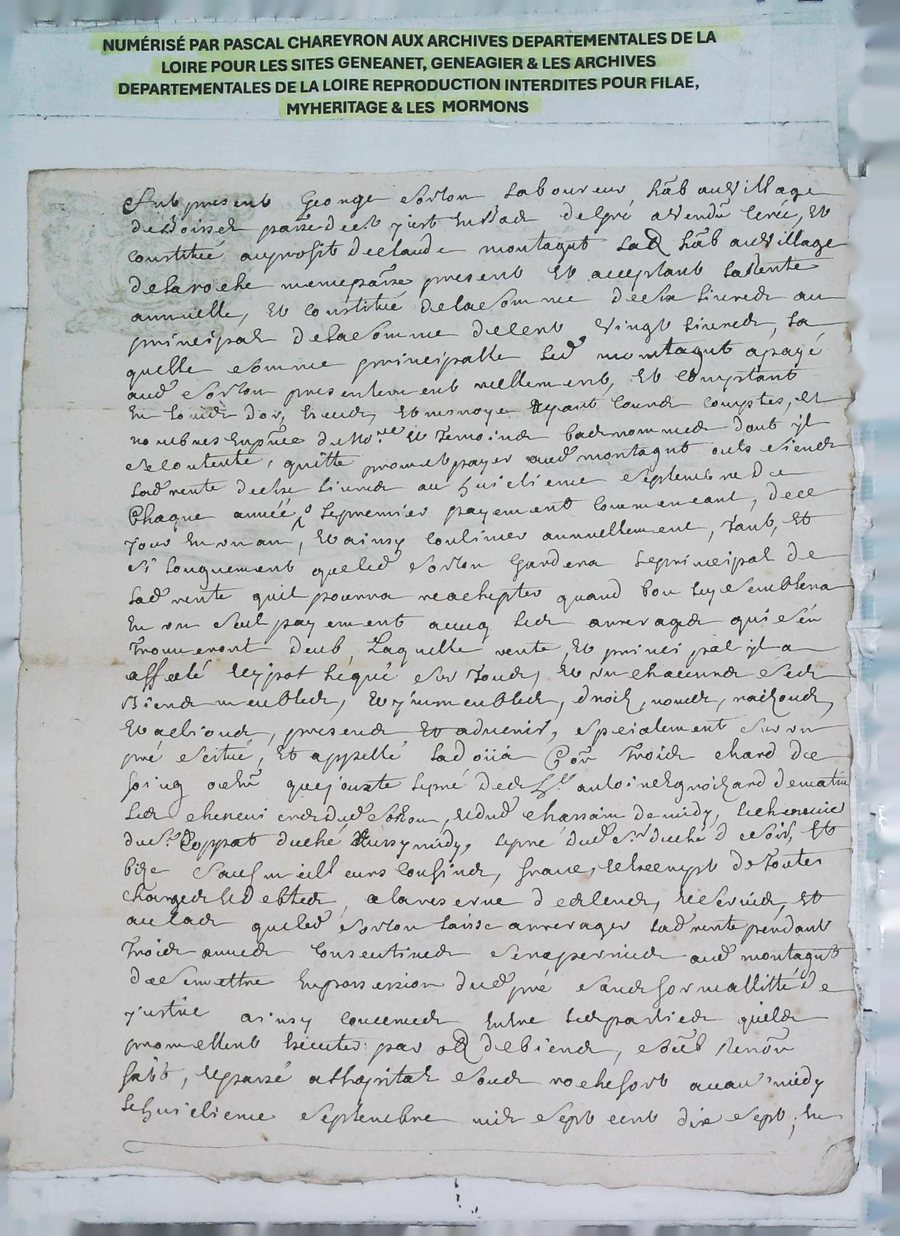 NUMÉRISÉ PAR PASCAL CHAREYRON AUX ARCHIVES DEPARTEMENTALES DE LA
LOIRE POUR LES SITES GENEANET, GENEAGIER & LES ARCHIVES
DEPARTEMENTALES DE LA LOIRE REPRODUCTION INTERDITES POUR FILAE,
MYHERITAGE & LES MORMONS
fut present George laboureur hãb au village
de gré a vendu creé, et
constitué au profit de claude montagut hãb au village
de la roche meme present et acceptant la rente
annuelle, et constitué de la somme de six livres au
principal de la somme de cent vingt livres, la
quelle somme principalle led montagut a payé
aud presentement reellement, et comptant
en louis d'or, escus, et monoye ayant cours comptés, et
nombrés du no.re et temoins bas nommes dont il
se contente, quitte promet payer aud montagut ou es siens
lad rente de six livres au huictieme septembre de
chaque année le premier payement commencant, de ce
jour en un an, et ainsy continuer annuellement, tant, et
si longuement que led gardera le principal de
lad rente quil pourra rachepter quand bon luy semblera
en un seul payement avecq les arrerages qui s'en
trouveront deub, Laquelle rente, et principal il a
affecté hypothéqué sur tous, et un chacuns ses
Biens meubles, et immeubles, droits, noms, raisons,
et actions, presens et advenir, specialement sur un
pré situé, et appellé trois chard de
foing que jouxte le pré des antoine de matin
de midy,
du sr duché le pré dud sr duché de soir, et
bize sauf meilleurs confins, franc, et exempt de toutes
charges et debtes, a la reserve d et
au cas que led laisse arrerager lad rente pendant
trois annés consentives sera permis aud montagut
de se mettre en possession dud pré sans formallitté de
justice ainsy convenus entre les parties quelles
promettent executer par de biens,
fait, et passé a lhopital sous rochefort avant midy
le huictieme septembre mil sept cent dix sept, en